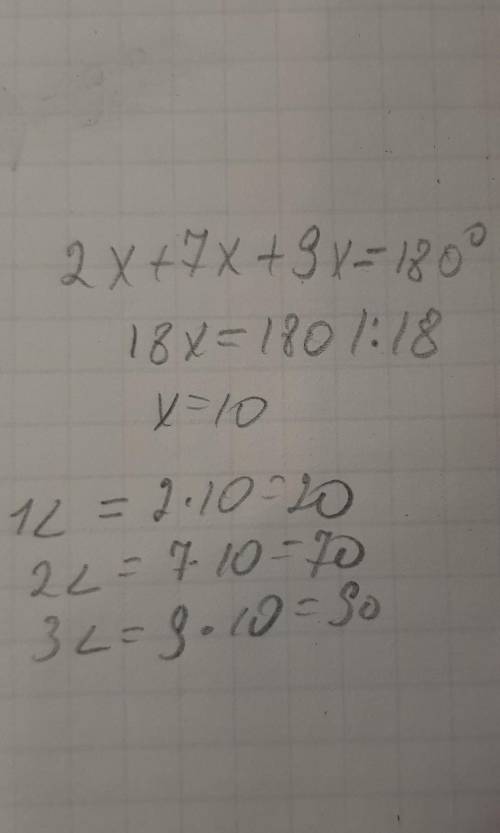 2x+7x+9x=180°
18x=180 |:18
x=10
1∠ = 2·10=20
2∠ = 7·10=70
3∠ = 9·10=90